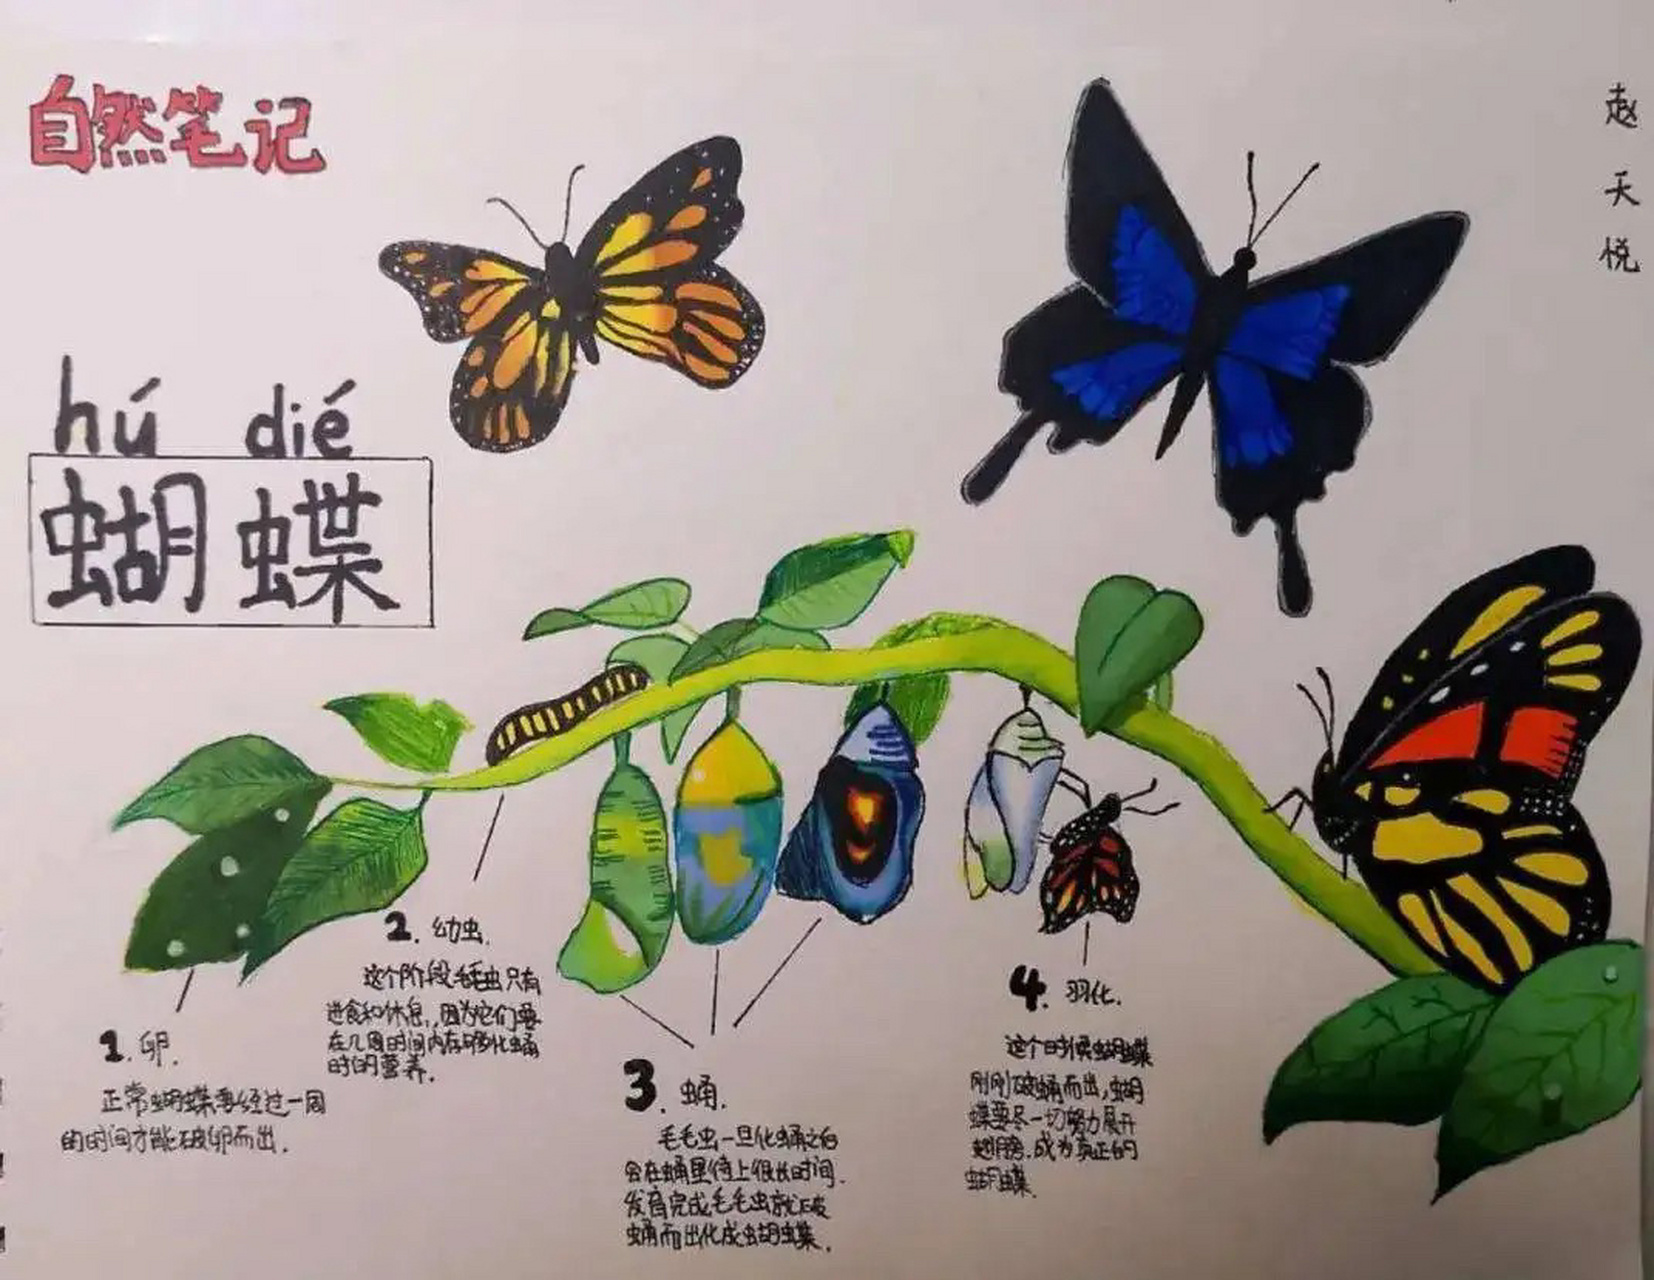 自然笔记
赵天悦
hú dié
蝴蝶
1. 卵.
正常蝴蝶要经过一周
的时间才能破卵而出.
2. 幼虫.
这个阶段毛虫只有
进食和休息,因为它们要
在几周时间内存够化蛹
时的营养.
3. 蛹.
毛毛虫一旦化蛹之后
会在蛹里待上很长时间.
发育完成毛毛虫就破
蛹而出化成蝴蝶.
4. 羽化.
这个时候蝴蝶
刚刚破蛹而出,蝴
蝶要尽一切努力展开
翅膀.成为真正的
蝴蝶.